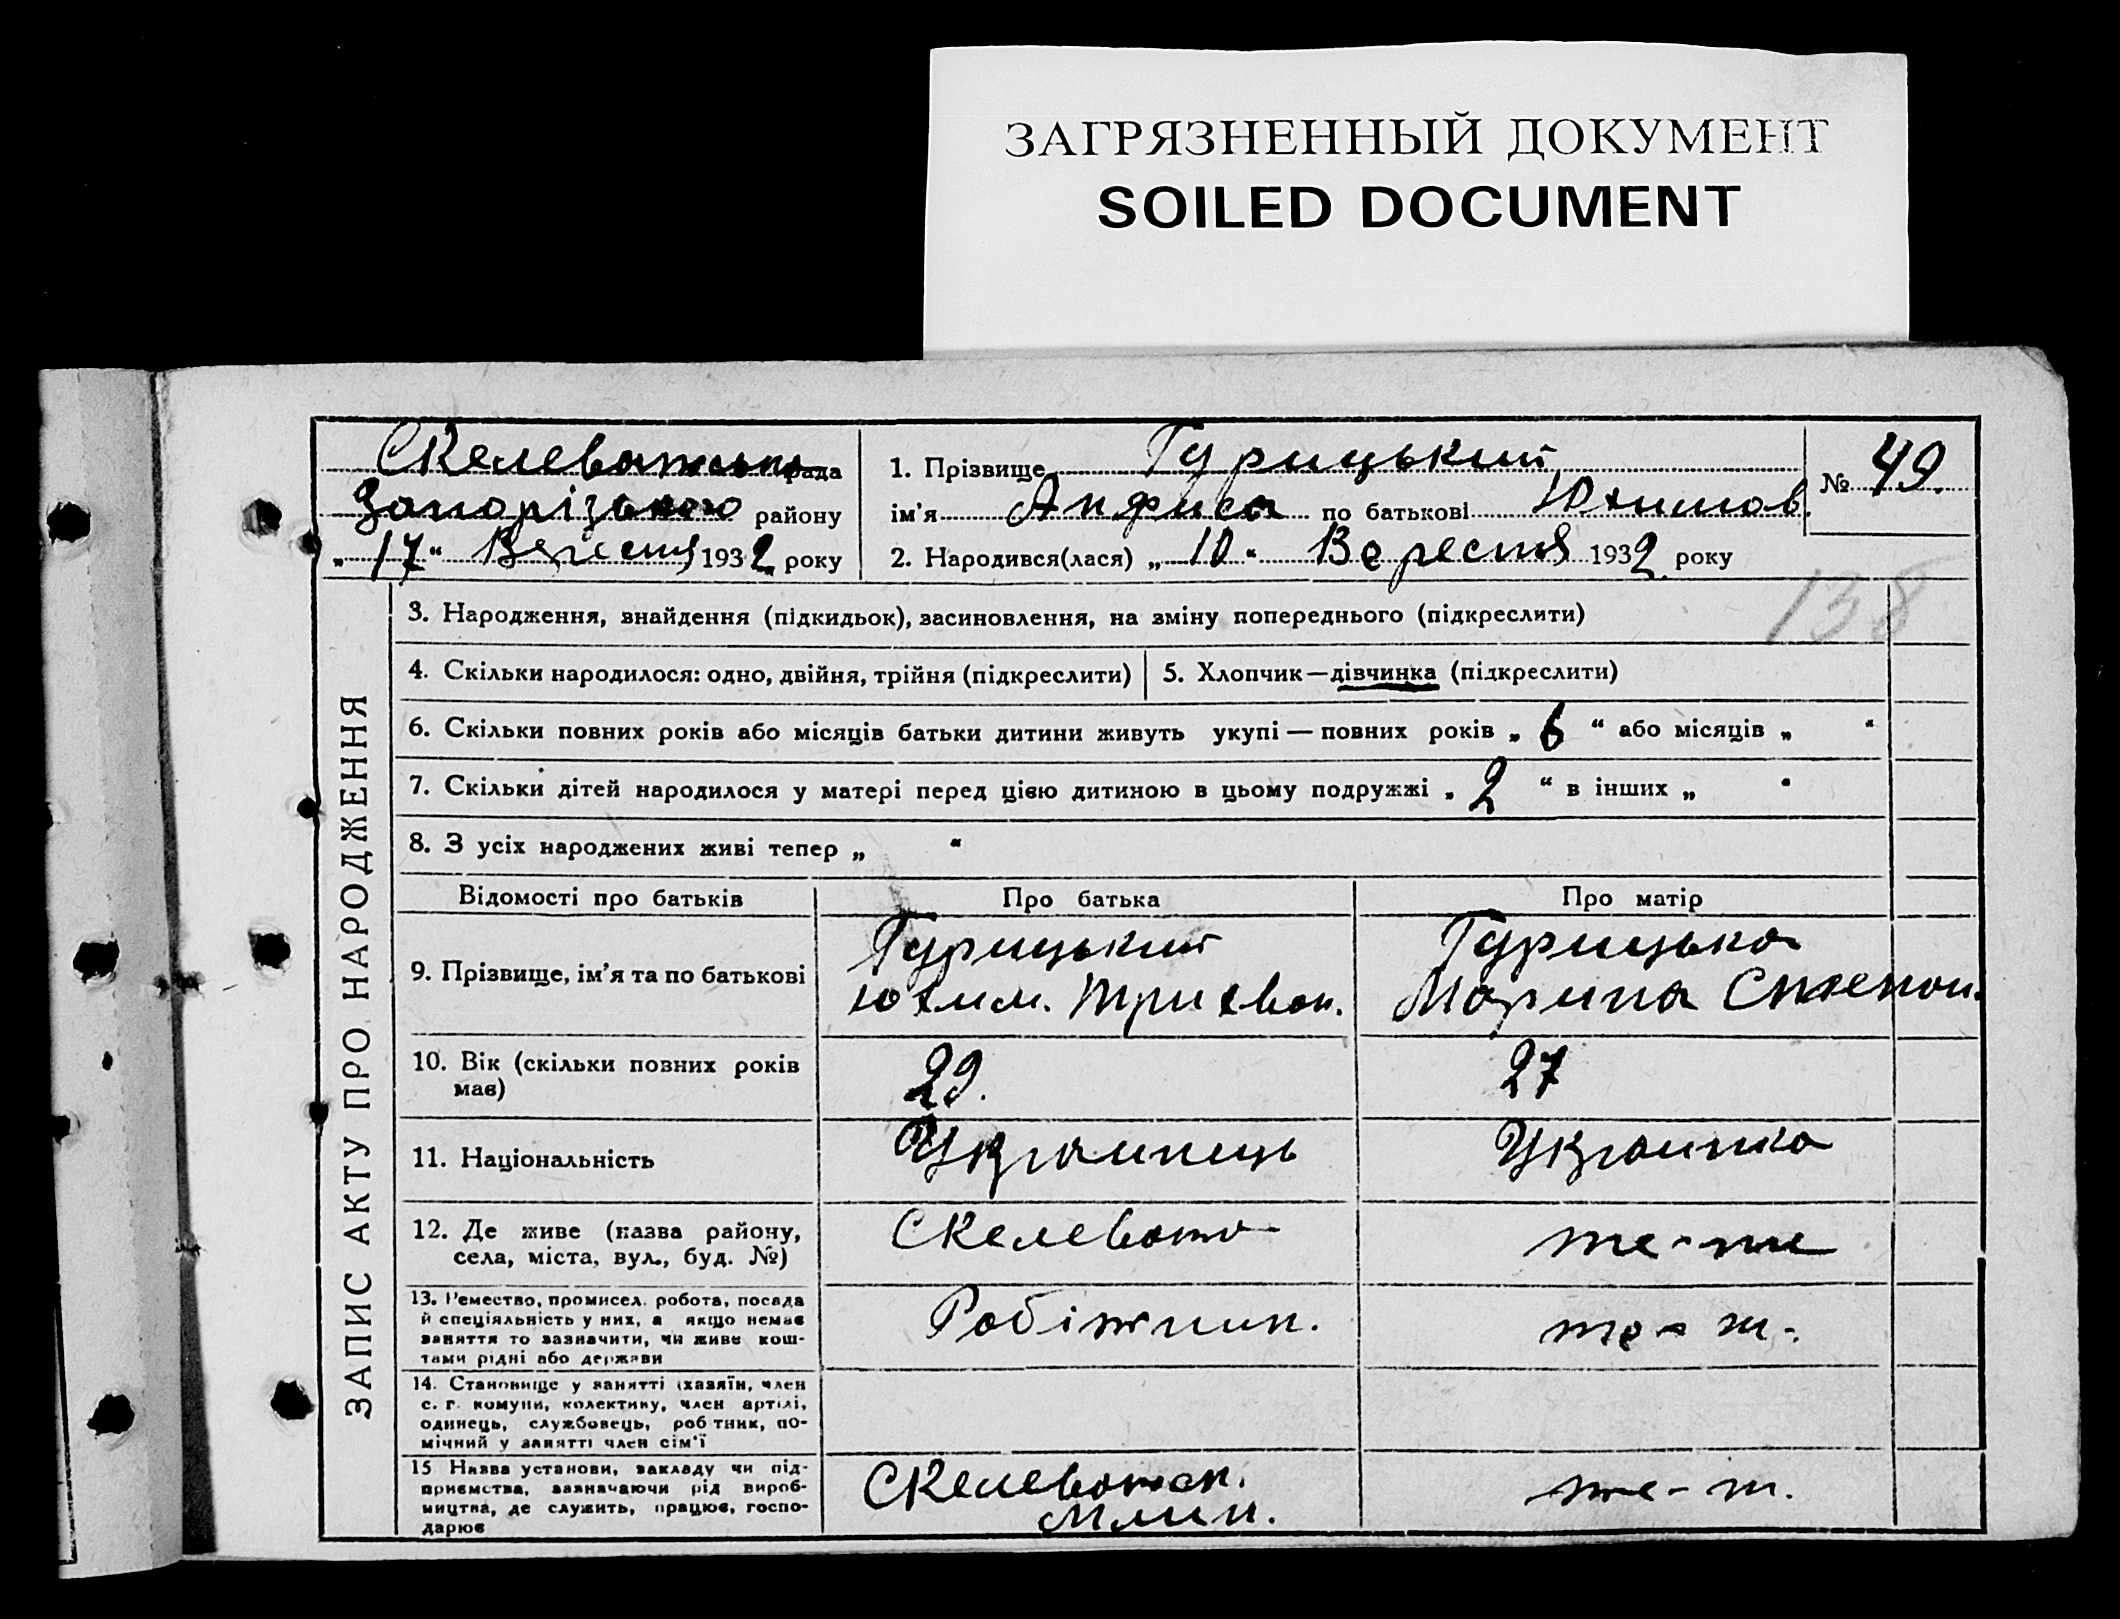 ЗАГРЯЗНЕННЫЙ ДОКУМЕНТ
SOILED DOCUMENT
Скелеватська рада
Запорізького району
„ 17 “ Вересня 1932 року
1. Прізвище Гурицький
ім'я Анфиса по батькові Юхимов.
2. Народився(лася) „ 10 “ Вересня 1932 року
№ 49.
138
ЗАПИС АКТУ ПРО НАРОДЖЕННЯ
3. Народження, знайдення (підкидьок), засиновлення, на зміну попереднього (підкреслити)
4. Скільки народилося: одно, двійня, трійня (підкреслити)
5. Хлопчик — дівчинка (підкреслити)
6. Скільки повних років або місяців батьки дитини живуть укупі — повних років „ 6 “ або місяців „ “
7. Скільки дітей народилося у матері перед цією дитиною в цьому подружжі „ 2 “ в інших „ “
8. З усіх народжених живі тепер „ “
Відомості про батьків
Про батька
Про матір
9. Прізвище, ім'я та по батькові
Гурицький
Юхим. Трихвон.
Гурицька
Марина Степан.
10. Вік (скільки повних років
має)
29.
27
11. Національність
Украинець
Украинка
12. Де живе (назва району,
села, міста, вул., буд. №)
Скелевата
те-же
13. Ремество, промисел, робота, посада
й спеціяльність у них, а якщо немає
заняття то зазначити, чи живе кош-
тами рідні або держави
Робітник.
те-ж.
14. Становище у занятті (хазяїн, член
с. г. комуни, колективу, член артілі,
одинець, службовець, робітник, по-
мічний у занятті член сім'ї
15 Назва установи, закладу чи під-
приємства, зазначаючи рід вироб-
ництва, де служить, працює, госпо-
дарює
Скелеватск.
Млин.
те-ж.